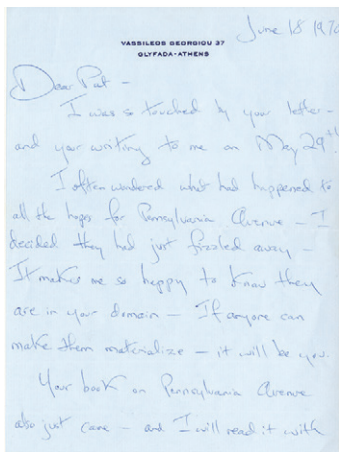 June 18 1970
VASSILEOS GEORGIOU 37
GLYFADA-ATHENS
Dear Pat -
I was so touched by your letter -
and your writing to me on May 29th!
I often wondered what had happened to
all the hopes for Pennsylvania Avenue - I
decided they had just fizzled away -
It makes me so happy to know they
are in your domain - If anyone can
make them materialize - it will be you.
Your book on Pennsylvania Avenue
also just came - and I will read it with